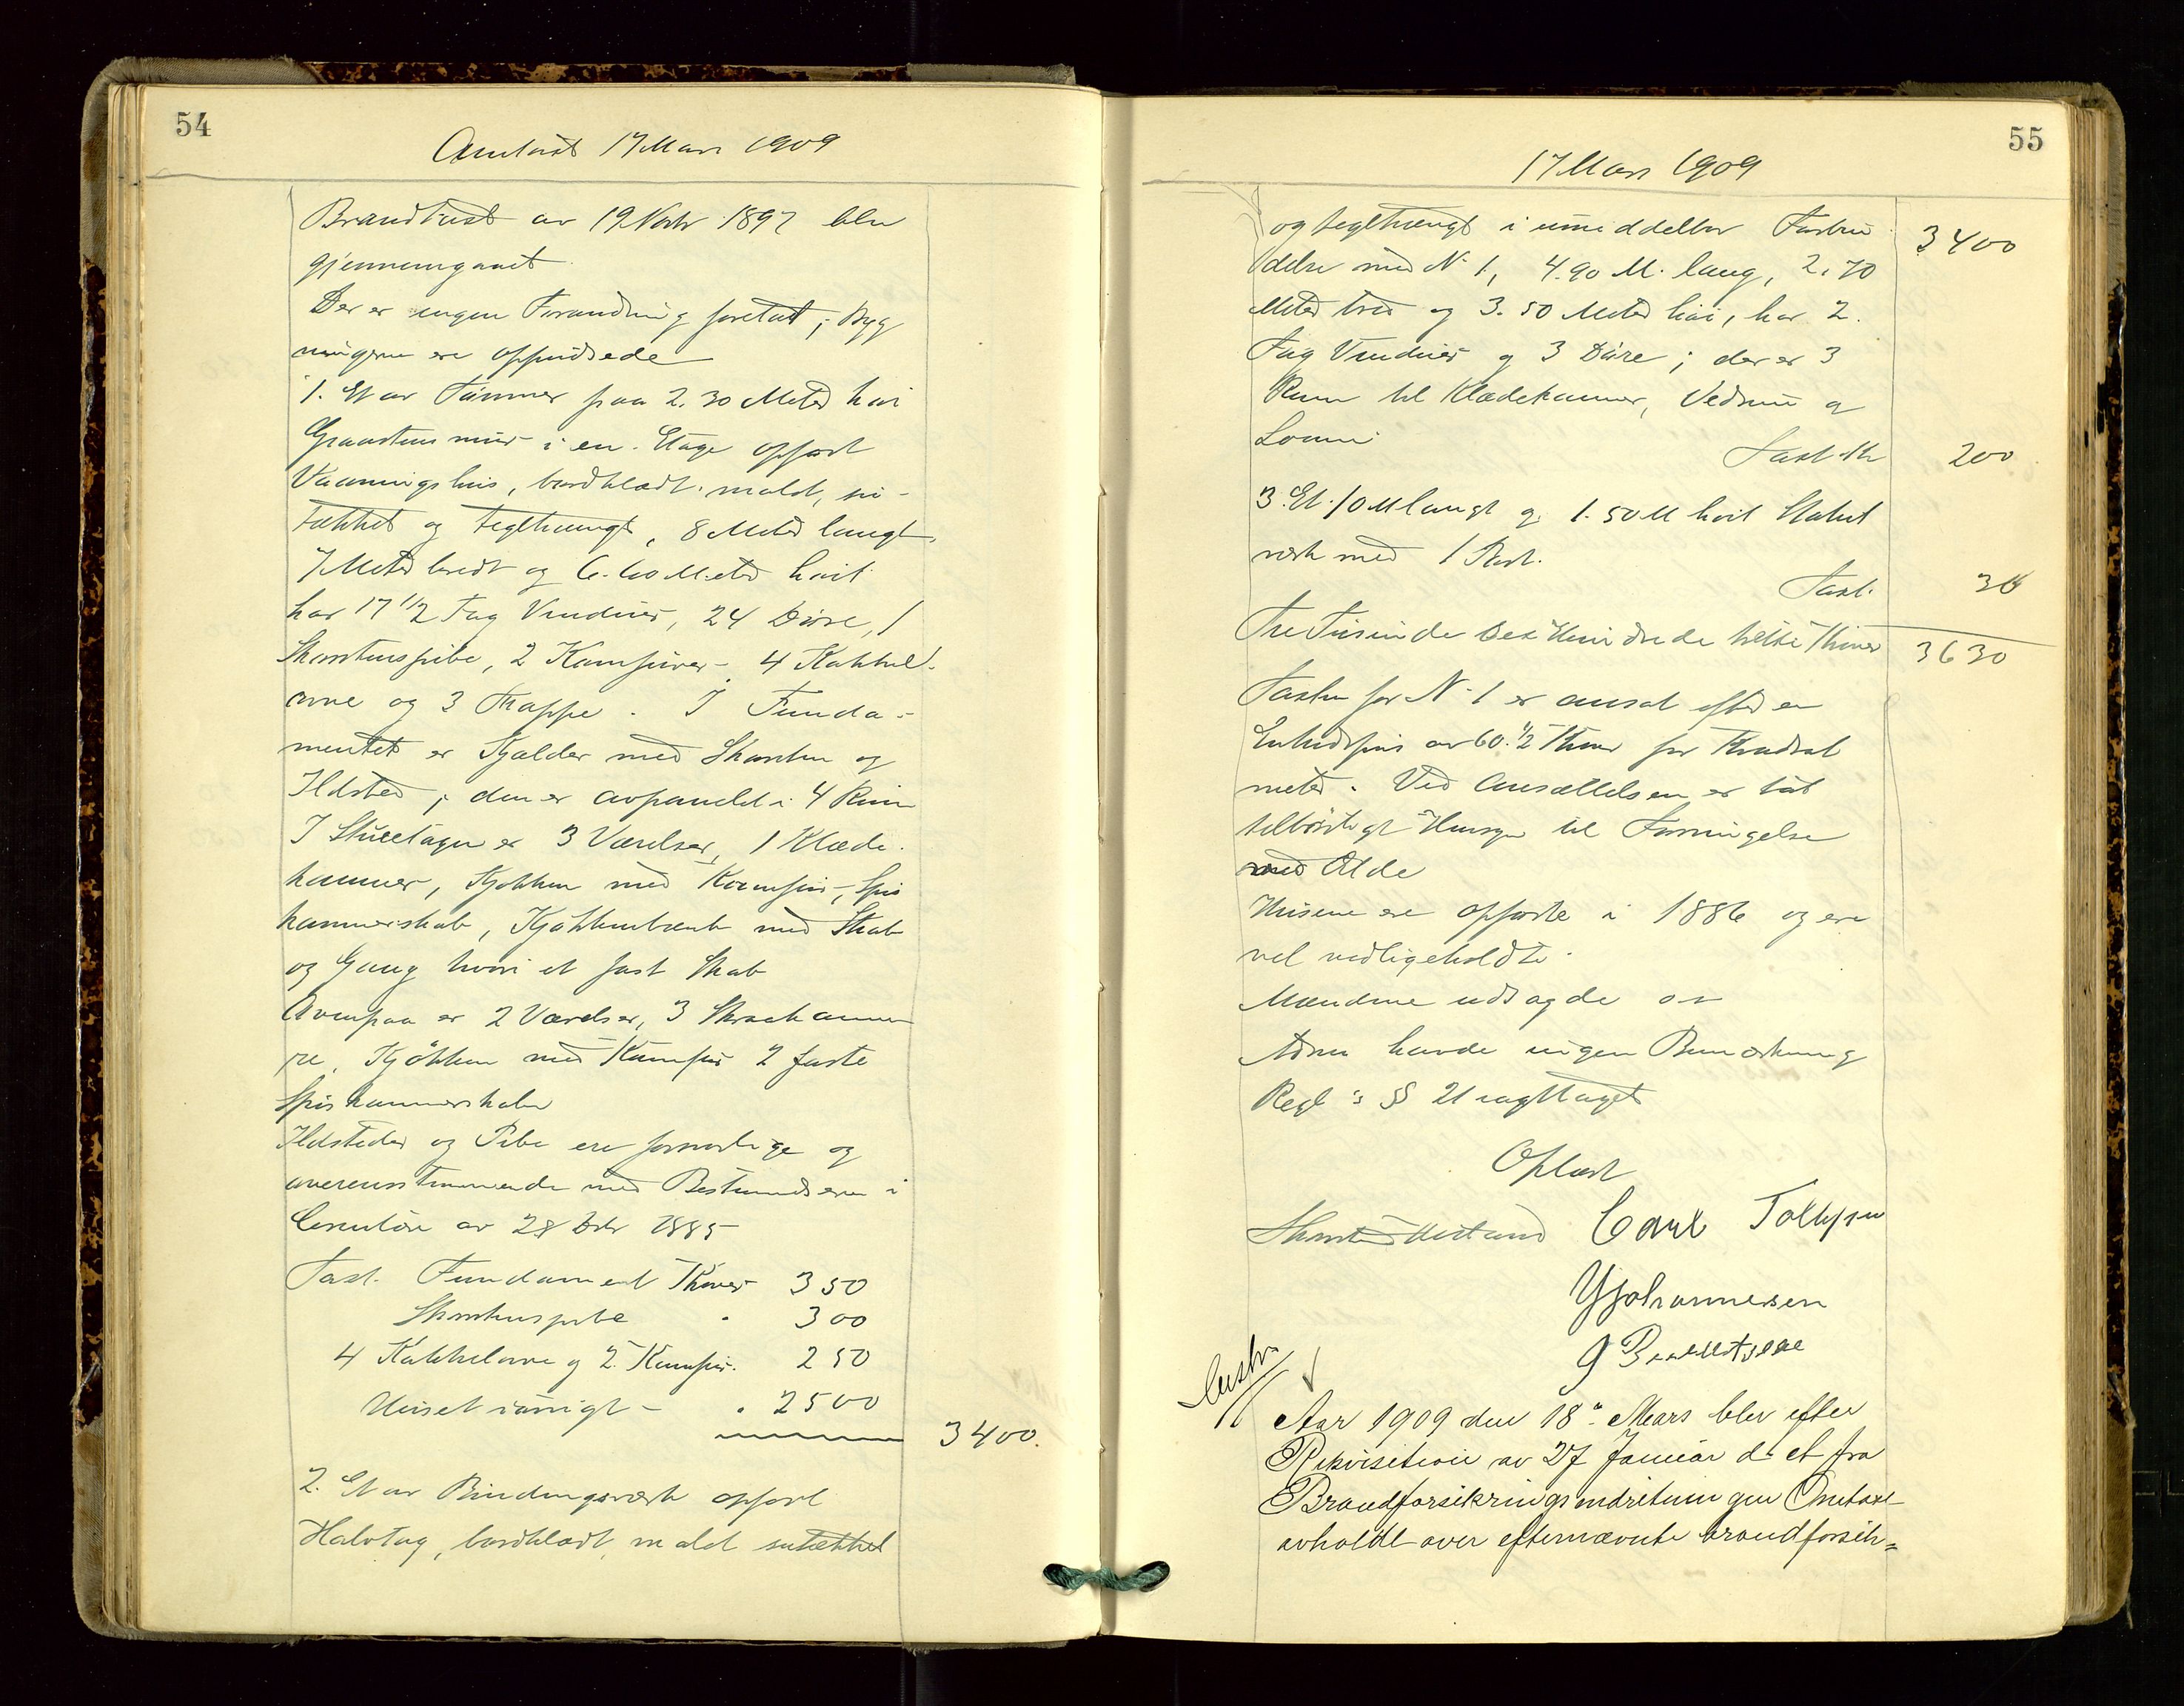 54
Omtaxt 17 Mars 1909
Brandtaxt av 19 Novbr 1897 blev
gjennemgaaet
Der er ingen Forandring foretat; Byg
ningerne ere oppudsede
1. Et av Tømmer paa 2.30 Meter høi
Graastens mur i en Etage opført
Vaaningshus, bordklædt, malet, su-
tækket og teglhængt, 8 Meter langt,
7 Meter bredt og 6.60 Meter høit
har 17 1/2 Fag Vinduer, 24 Døre, 1
Skorstenspibe, 2 Komfurer, 4 Kakkel-
ovne og 3 Trappe. I Funda-
mentet er Kjælder med Skorsten og
Ildsted; den er avpanelet i 4 Rum
I Stueetagen er 3 Værelser, 1 Klæde-
kammer, Kjøkken med Komfur, Spis
kammerskab, Kjøkkenbænk med Skab
og Gang hvori et fast Skab
Ovenpaa er 2 Værelser, 3 Skraakamme
re, Kjøkken med Komfur 2 faste
Spiskammerskabe
Ildsteder og Pibe ere forsvarlige og
overensstemmende med Bestemmelserne i
av 28 Dcbr 1885
Taxt. Fundament Kroner 350
Skorstenspibe " 300
4 Kakkelovne og 2 Komfur. 250
Huset iøvrigt - " 2500
3400.
2. Et av Bindingsværk opført
Halvtag, bordklædt, malet sutækket
55
17 Mars 1909
og teglhængt i umiddelbar Forbin
delse med No 1, 4.90 M. lang, 2.70
Meter bred og 3.50 Meter høi, har 2
Fag Vinduer og 3 Døre; der er 3
Rum til Klædekammer, Vedrum og
3400
Taxt Kr
200
3. Et 10 M langt og 1.50 M høit Stakit
værk med 1 Port.
Taxt.
30
Tre Tusinde Sex Hundrede tretti Kroner
3630
Taxten for No 1 er ansat efter en
Enhedspris av 60 1/2 Kroner pr Kvadrat
meter. Ved Ansættelsen er tat
tilbørligt Hensyn til Forringelse
ved Ælde
Husene ere opførte i 1886 og ere
vel vedligeholdte.
Mændene udsagde os
havde ingen Bemærkning
Regl's §§ 21 iagttaget
Oplæst
Carl Tollefsen
Johannesen
Aar 1909 den 18de Mars blev efter
Rekvisition av 27 Januar d. A. fra
Brandforsikringsindretningen Omtaxt
avholdt over efternævnte brandforsik=